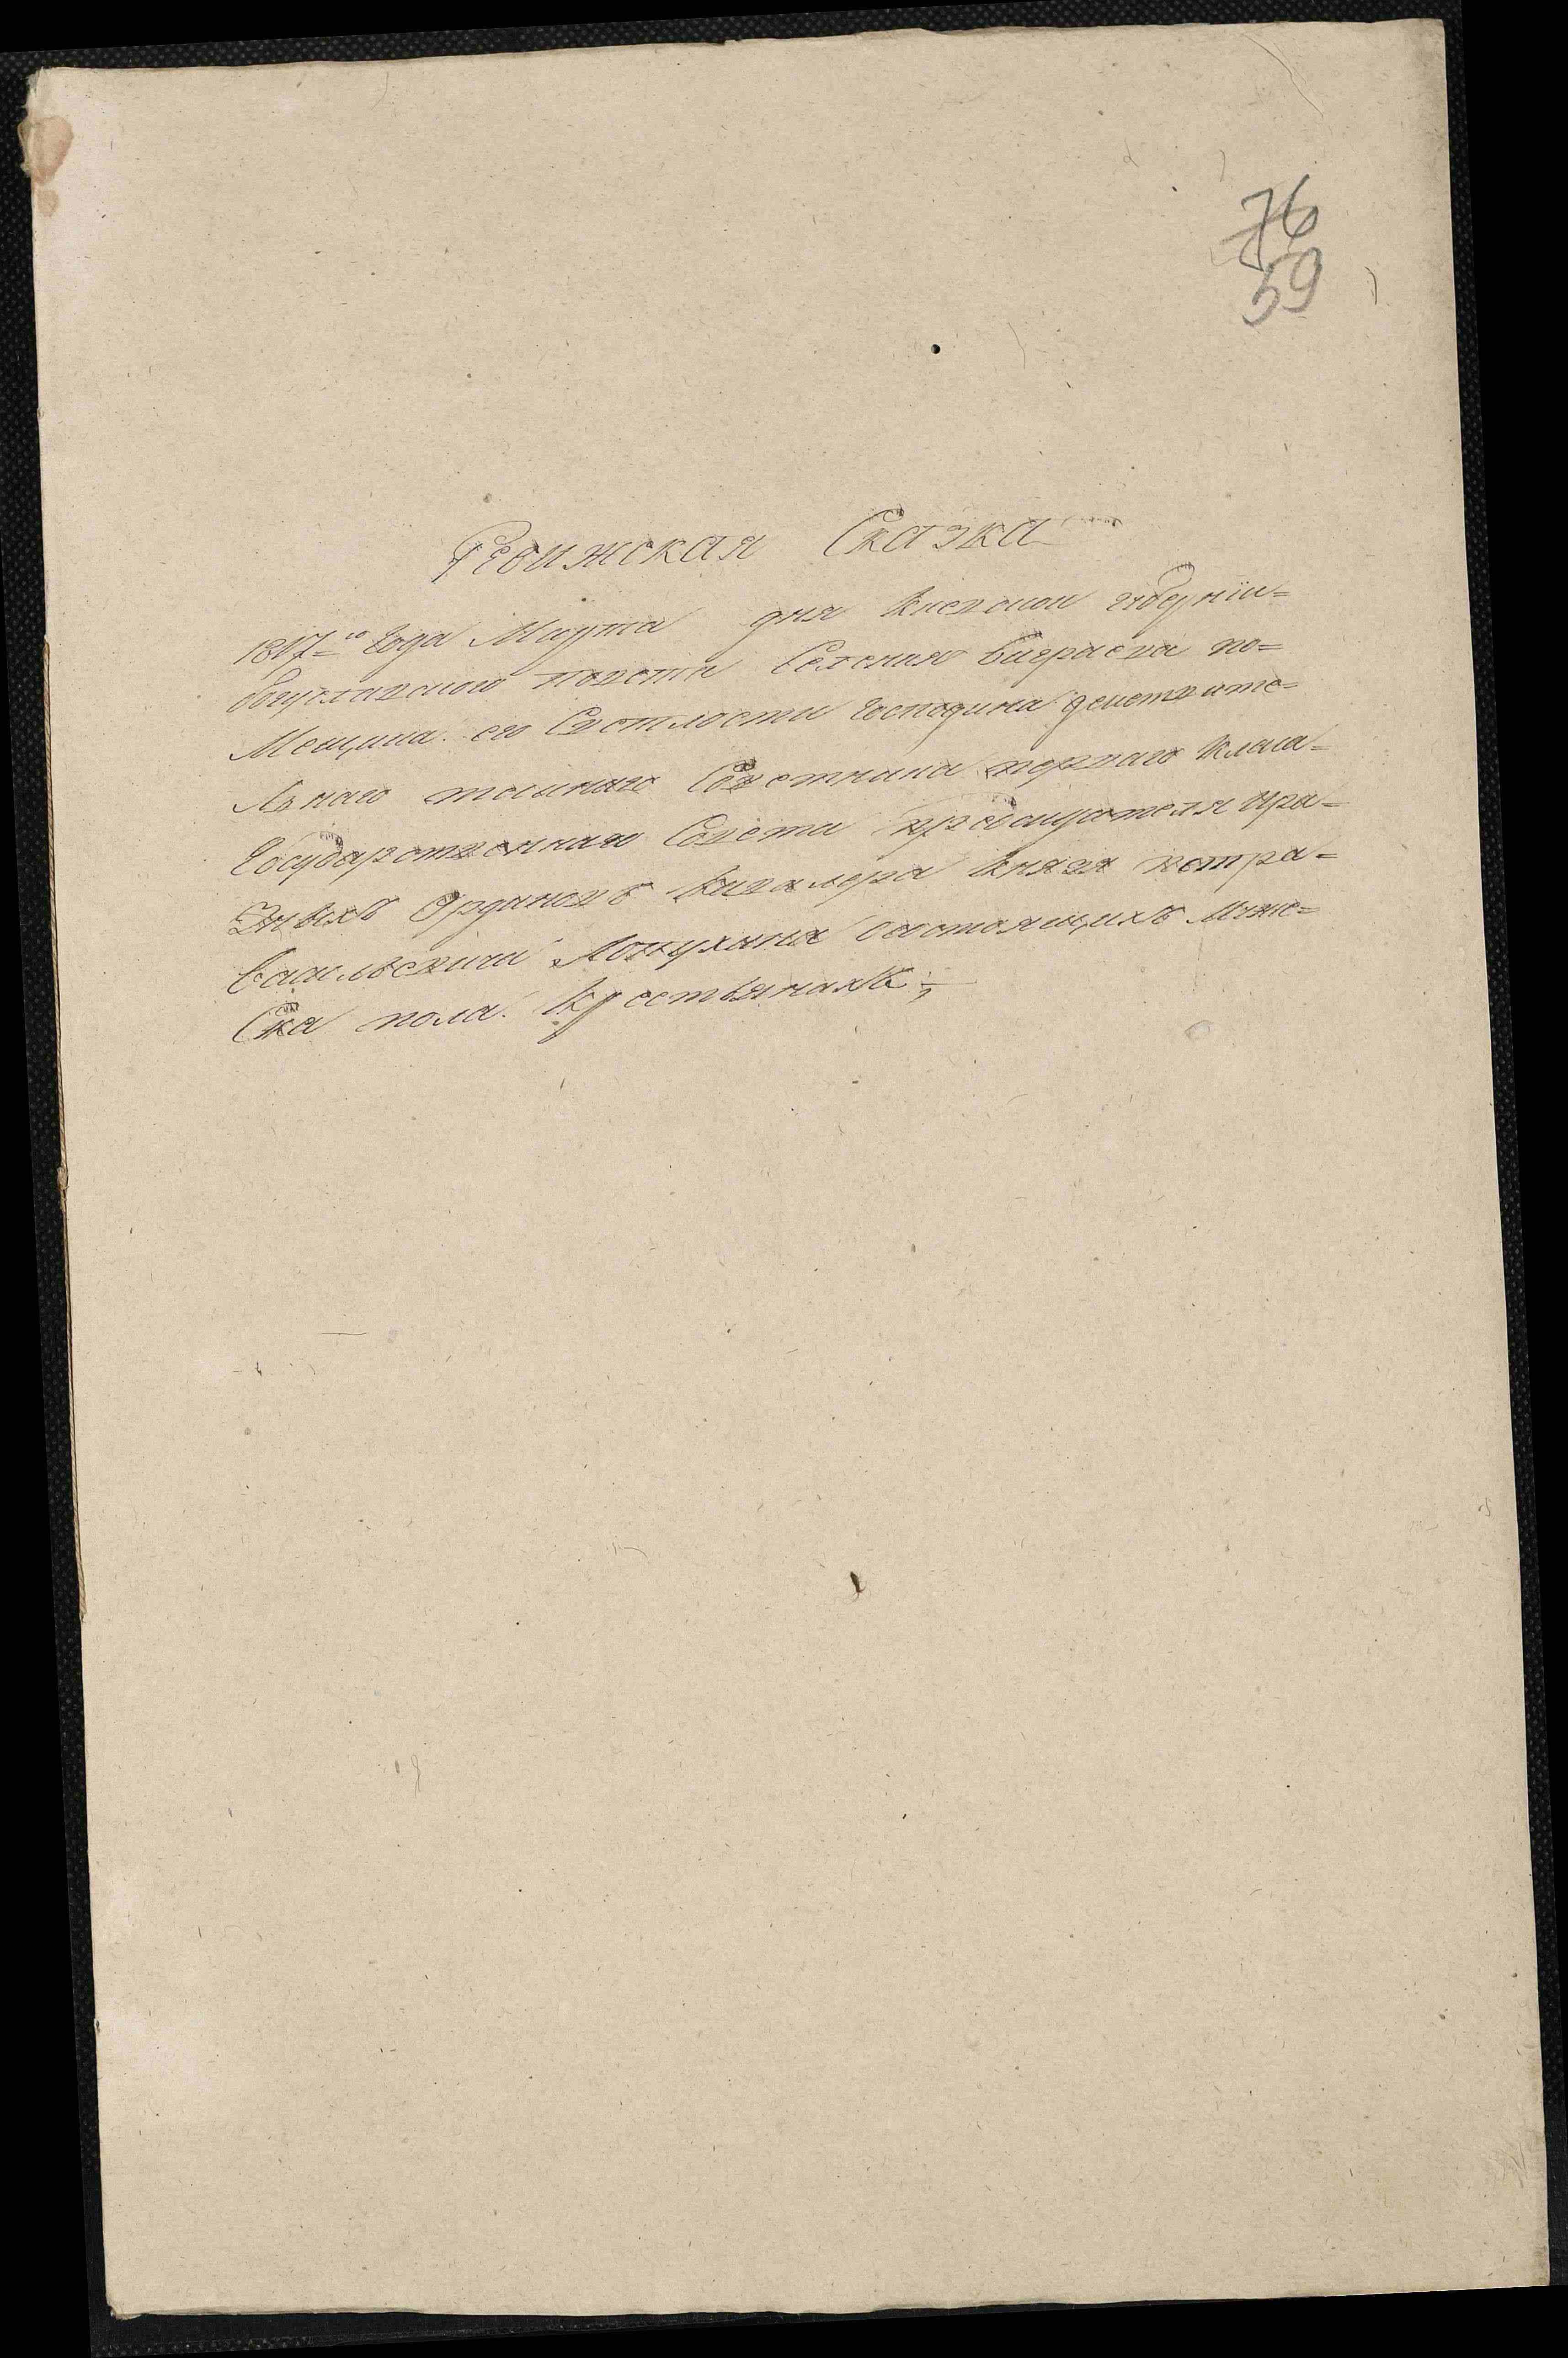 76
59
Ревижская Сказка
1817го Года Марта дня Киевской губернїи=
богуславского повета Селения Виграева по=
Мещика его Светлости Господина деиствите=
Льнаго таинаго Советника перваго Класа=
Государственнаго Совета председателя и ра=
Зныхъ Орденовъ Кавалера Князя петра=
Васильевича Лопухина Состоящихъ муже=
Ска пола Крестьянахъ